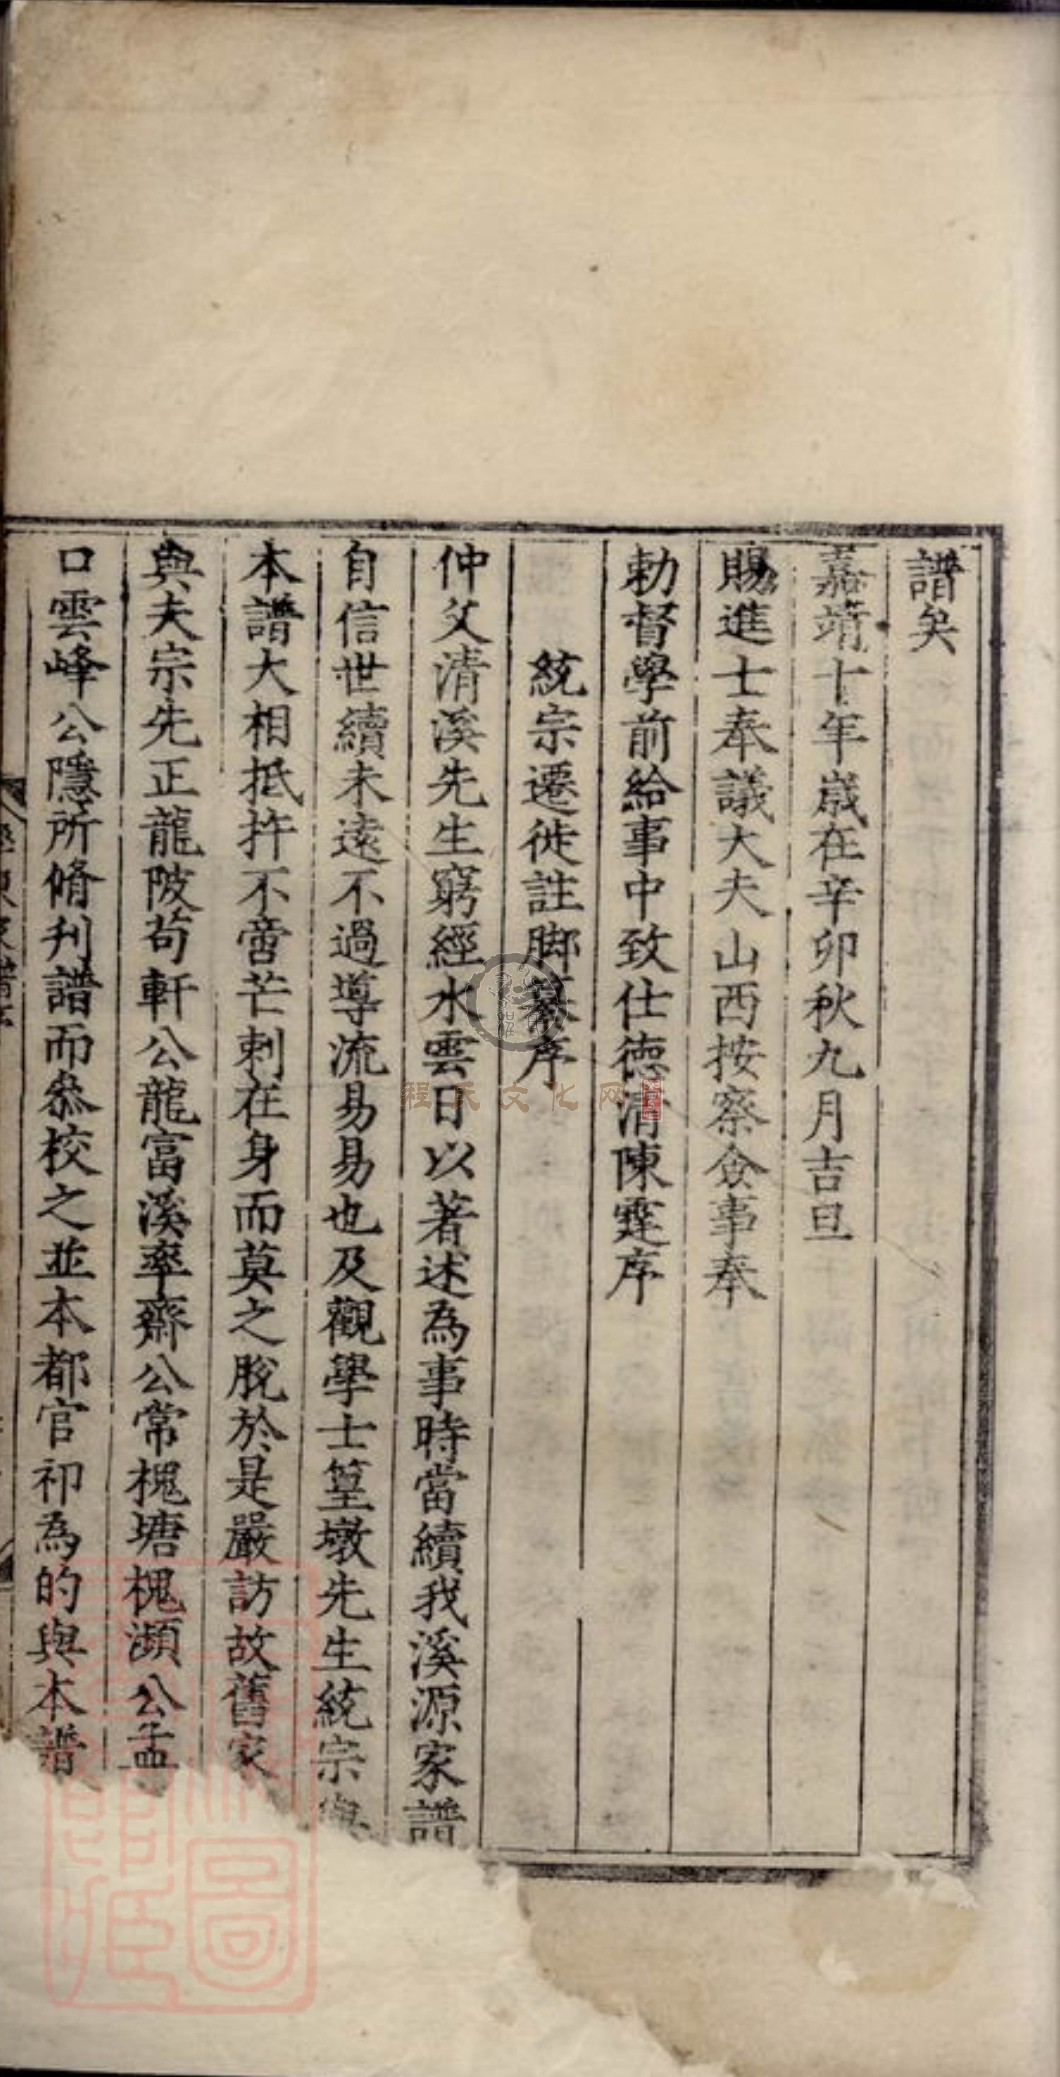 譜矣
嘉靖十年歲在辛卯秋九月吉旦
賜進士奉議大夫山西按察僉事奉
勅督學前給事中致仕德清陳霆序
統宗遷徙註脚纂序
仲父清溪先生窮經水雲日以著述為事時當續我溪源家譜
自信世續未遠不過導流易易也及觀學士篁墩先生統宗與
本譜大相抵捍不啻芒刺在身而莫之脫於是嚴訪故舊家
與夫宗先正龍陂苟軒公龍富溪率齋公常槐塘槐瀕公孟
口雲峰公隱所脩刋譜而叅校之並本都官祁為的與本譜
程氏文化网